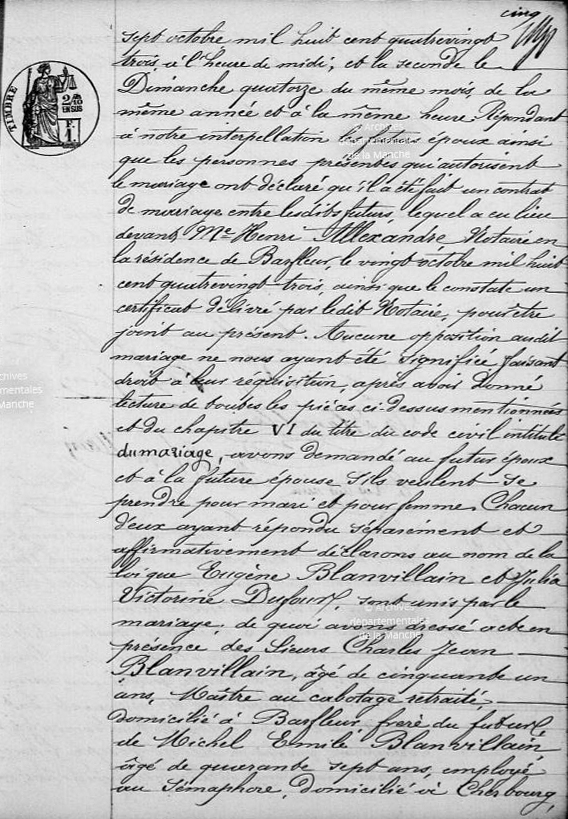 cinq
sept octobre mil huit cent quatrevingt
trois à l'heure de midi, et la seconde le
Dimanche quatorze du même mois, de la
même année et à la même heure. Répondant
à notre interpellation les futurs époux ainsi
que les personnes présentes qui autorisent
le mariage ont déclaré qu'il a été fait un contrat
de mariage entre lesdits futurs, lequel a eu lieu
devant Me Henri Allexandre Notaire en
la résidence de Barfleur, le vingt octobre mil huit
cent quatrevingt trois, ainsi que le constate un
certificat délivré par ledit Notaire, pour être
joint au présent. Aucune opposition audit
mariage ne nous ayant été signifiée, faisant
droit à leur réquisition, après avoir donné
lecture de toutes les pièces ci-dessus mentionnées
et du chapitre VI du titre du code civil intitulé
du mariage, avons demandé au futur époux
et à la future épouse s'ils veulent se
prendre pour mari et pour femme. Chacun
d'eux ayant répondu séparément et
affirmativement déclarons au nom de la
loi que Eugène Blanvillain et Julia
Victorine Dufour, sont unis par le
mariage, de quoi avons dressé acte en
présence des Sieurs Charles Jean
Blanvillain, âgé de cinquante un
ans, Maître au cabotage retraité,
domicilié à Barfleur, frère du futur,
de Michel Emile Blanvillain
âgé de quarante sept ans, employé
au Sémaphore, domicilié à Cherbourg,
TIMBRE
2/10
EN SUS
© Archives
départementales
de la Manche
© Archives
départementales
de la Manche
Archives
départementales
de la Manche